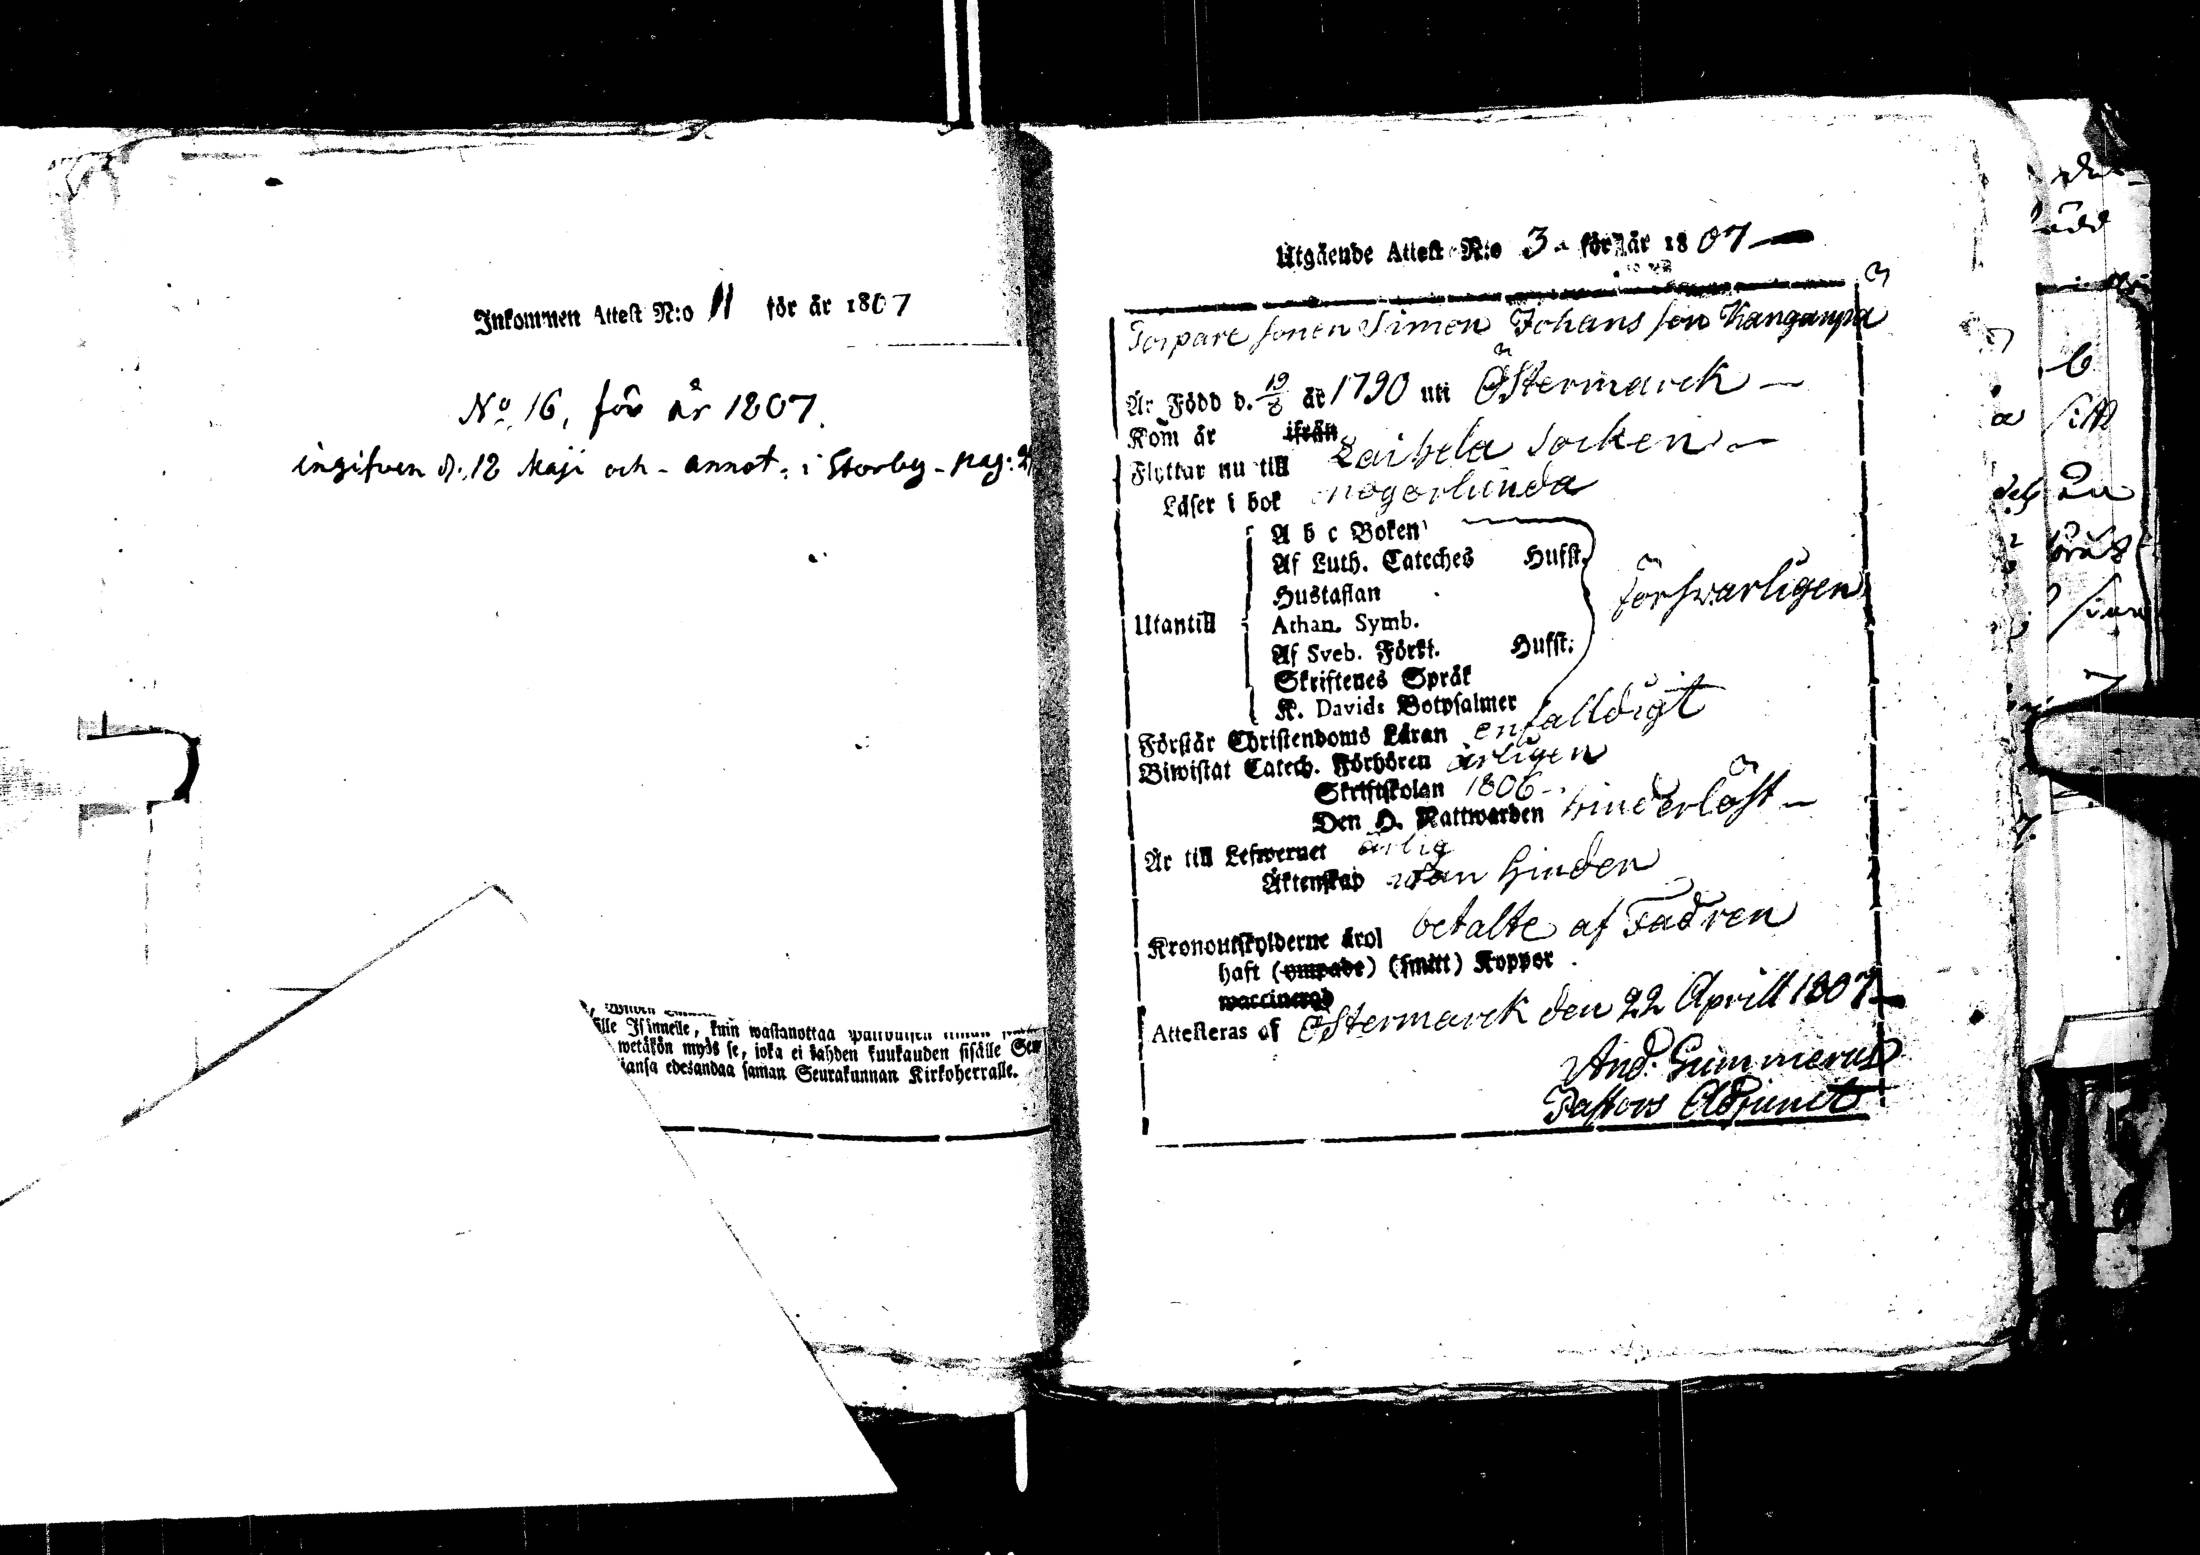 Inkommen Attest N:o 11 för år 1807
No 16, för år 1807.
ingifven d. 12 Maji och annot. i Storby - pag: 2
Isinnelle, kuin wastanottaa
wetäkön myös se, joka ei kahden kuukauden sisälle Seu
edesandaa saman Seurakunnan Kirkoherralle.
Utgående Attest N:o 3 för år 1807
Torpare sonen Simon Johans son Kanganpä
Är Född d. 19/8 år 1790 uti Östermarck
Kom år ifrån
Flyttar nu till Laihela Socken
Läser i bok någorlunda
Utantill
A b c Boken
Af Luth. Cateches Hufst.
Hustaflan
Athan. Symb.
Af Sveb. Förkl. Hufst.
Skriftenes Språk
K. Davids Botpsalmer
försvarligen
Förstår Christendoms Läran enfalldigt
Biwistat Catech. Förhören årligen
Skriftskolan 1806
Den H. Nattwarden hinderlöst
Är till Lefwernet ärlig
Äktenskap utan hinder
Kronoutskylderne äro betalte af Fadren
haft (ympade) (smitt) Koppor
waccinerad
Attesteras af Östermarck den 22 Aprill 1807
And. Gummerus
Pastors Adjunct